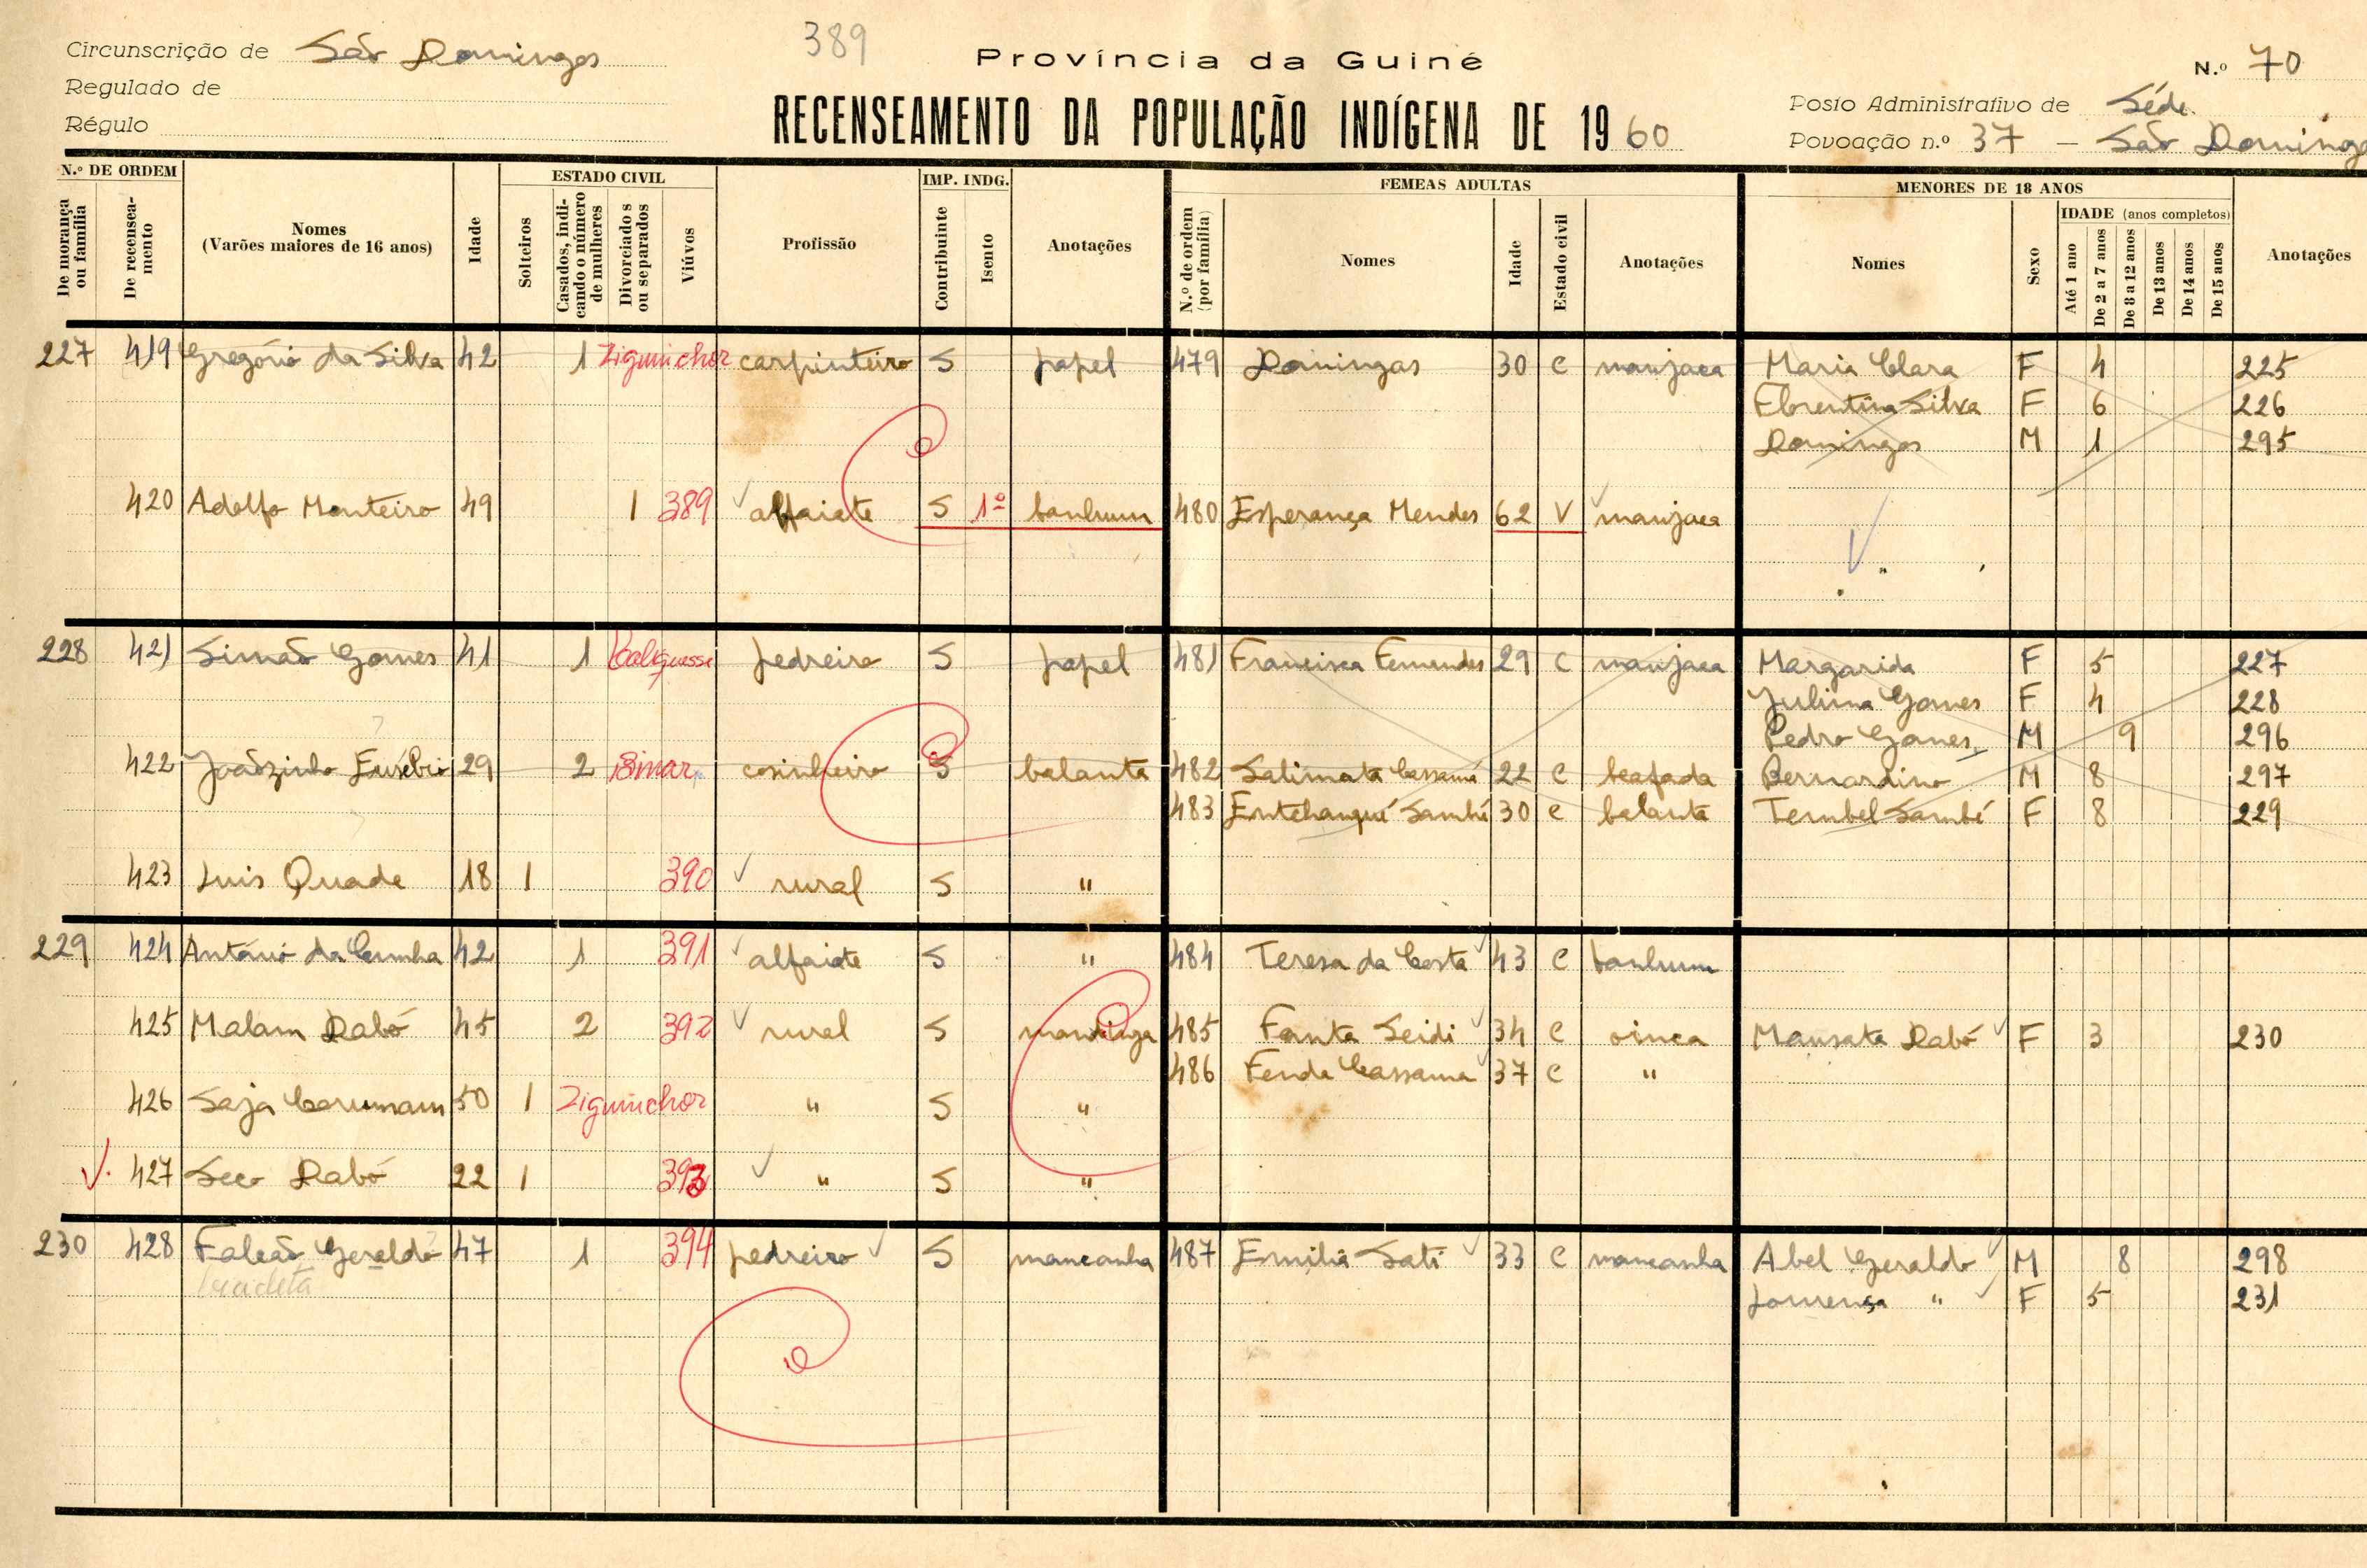 389
Circunscrição de São Domingos
Província da Guiné
N.º 70
Regulado de
Régulo
RECENSEAMENTO DA POPULAÇÃO INDÍGENA DE 1960
Posto Administrativo de Séde.
Povoação n.º 37 — São Domingo
N.º DE ORDEM
De morança ou família
De recenseamento
Nomes
(Varões maiores de 16 anos)
Idade
ESTADO CIVIL
Solteiros
Casados, indicando o número de mulheres
Divorciados ou separados
Viúvos
Profissão
IMP. INDG.
Contribuinte
Isento
Anotações
FEMEAS ADULTAS
N.º de ordem (por família)
Nomes
Idade
Estado civil
Anotações
MENORES DE 18 ANOS
Nomes
Sexo
IDADE (anos completos)
Até 1 ano
De 2 a 7 anos
De 8 a 12 anos
De 13 anos
De 14 anos
De 15 anos
Anotações
227 419 Gregório da Silva 42 1 Ziguinchor carpinteiro S papel 479 Domingas 30 C manjaca Maria Clara F 4 225
Florentina Silva F 6 226
Domingos M 1 295
420 Adolfo Monteiro 49 1 389 alfaiate S 1º banhum 480 Esperança Mendes 62 V manjaca
228 421 Simão Gomes 41 1 pedreiro S papel 481 Francisca Fernandes 29 C manjaca Margarida F 5 227
Julina Gomes F 4 228
Pedro Gomes M 9 296
422 Joãozinho Eusébio 29 2 cosinheiro S balanta 482 Salimata Cassamá 22 C beafada Bernardino M 8 297
483 Entchanqué Sambú 30 C balanta Tembel Sambú F 8 229
423 Luis Quade 18 1 390 rural S "
229 424 António da Cunha 42 1 391 alfaiate S " 484 Teresa da Costa 43 C banhum
425 Malam Dabó 45 2 392 rural S mandinga 485 Fanta Seidi 34 C oinca Mansata Dabó F 3 230
486 Fenda Cassama 37 C "
426 Saja 50 1 Ziguinchor " S "
427 Seco Dabó 22 1 393 " S "
230 428 Falcão Geraldo 47 1 394 pedreiro S mancanha 487 Emília Sati 33 C mancanha Abel Geraldo M 8 298
bicicleta
Lourença " F 5 231